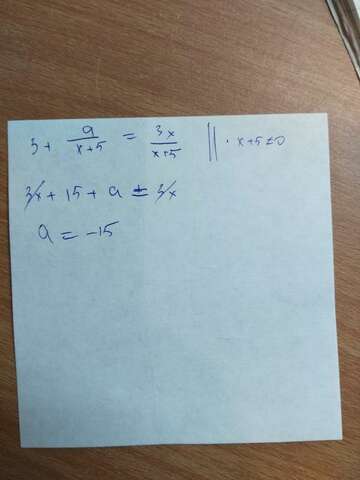 3 + a/(x+5) = 3x/(x+5) || · x+5≠0
3x + 15 + a = 3x
a = -15